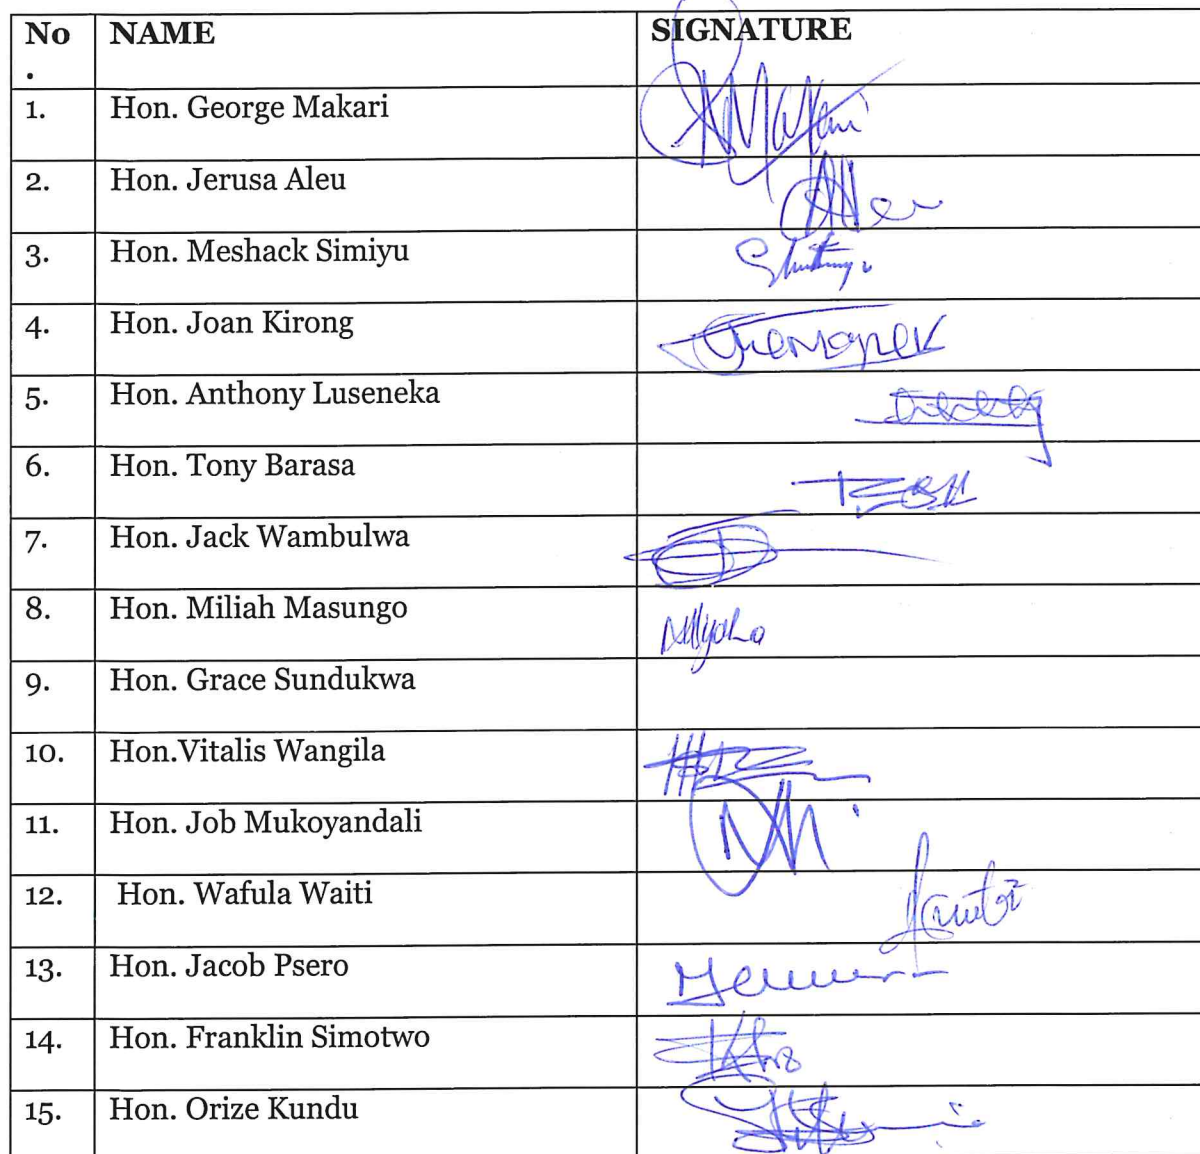 No NAME SIGNATURE
.
1. Hon. George Makari
2. Hon. Jerusa Aleu
3. Hon. Meshack Simiyu
4. Hon. Joan Kirong
5. Hon. Anthony Luseneka
6. Hon. Tony Barasa
7. Hon. Jack Wambulwa
8. Hon. Miliah Masungo
9. Hon. Grace Sundukwa
10. Hon.Vitalis Wangila
11. Hon. Job Mukoyandali
12. Hon. Wafula Waiti
13. Hon. Jacob Psero
14. Hon. Franklin Simotwo
15. Hon. Orize Kundu